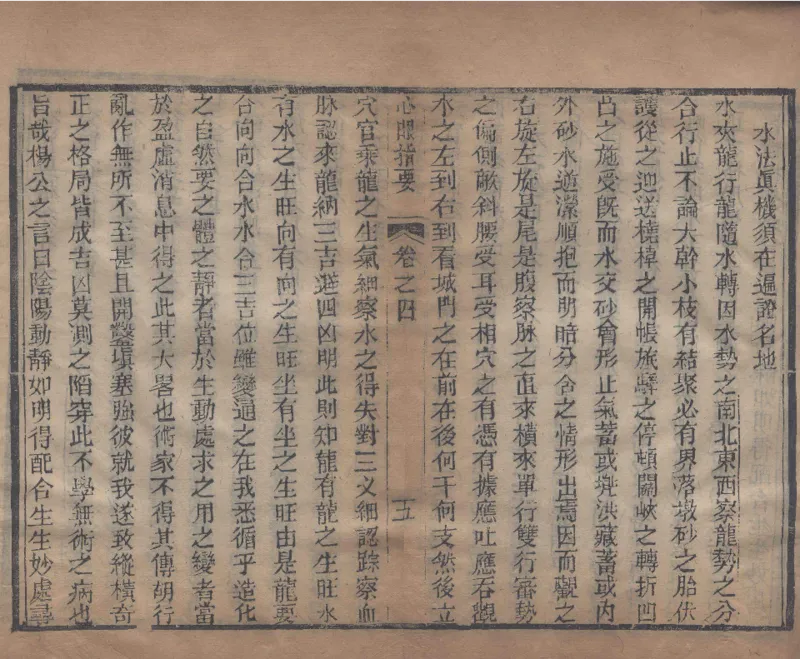 水法眞機須在遍證名地
水夾龍行龍隨水轉因水勢之南北東西察龍勢之分
合行止不論大幹小枝有結聚必有界落墩砂之胎伏
護從之迎送橈棹之開帳旅驛之停頓關峽之轉折凹
凸之施受旣而水交砂會形止氣蓄或兠洪藏蓄或內
外砂水遒潔順抱而明暗分合之情形出焉因而觀之
右旋左旋是尾是腹察脉之直來橫來單行雙行審勢
之偏側敧斜腰受耳受相穴之有憑有據應吐應吞觀
水之左到右到看城門之在前在後何干何支然後立
心眼指要 卷之四 五
穴官乘龍之生氣細察水之得失對三义細認踪察血
脉認來龍納三吉避四凶明此則知龍有龍之生旺水
有水之生旺向有向之生旺坐有坐之生旺由是龍要
合向向合水水合三吉位雖變通之在我悉循乎造化
之自然要之體之靜者當於生動處求之用之變者當
於盈虛消息中得之此其大畧也術家不得其傳胡行
亂作無所不至甚且開鑿塡塞強彼就我遂致縱橫奇
正之格局皆成吉凶莫測之陷穽此不學無術之病也
旨哉楊公之言曰陰陽動靜如明得配合生生妙處尋